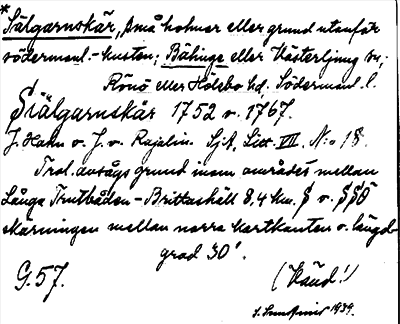 * Själgarnskär, små holmar eller grund utanför
södermanl.-kusten; Bälinge eller Västerljung sn;
Rönö eller Hölebo hd, Södermanl. l.
Siälgarnskär 1752 o. 1767.
J. Hahn o. J. v. Rajalin. Sjk, Litt. VII. No 18.
Trol. avsågs grund inom området mellan
Långa Trutbåden - Brittaskäll 8,4 km. S o. SSO
skärningen mellan norra kartkanten o. längd-
grad 30'.
G. 57.
(Känd!)
1939.